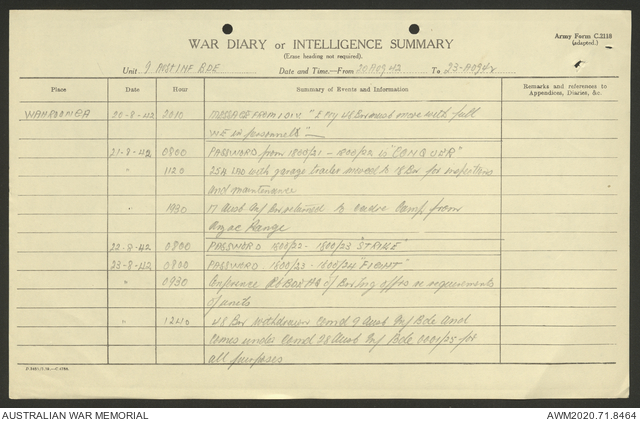 Army Form C.2118
(adapted.)
WAR DIARY or INTELLIGENCE SUMMARY
(Erase heading not required).
Unit 9 AUST INF BDE Date and Time—From 20 AUG 42 To 23 AUG 42
Place Date Hour Summary of Events and Information Remarks and references to Appendices, Diaries, &c.
20-8-42 2010 MESSAGE FROM 1 DIV. " 48 Bn must move with full
WE in personnel"
21-8-42 0800 PASSWORD from 1800/21 - 1800/22 is "CONQUER"
" 1120 25A LAD with garage trailer moved to 18 Bn for inspections
and maintenance
" 1930 17 Aust Inf Bn returned to camp from
Anzac Range
22-8-42 0800 PASSWORD 1800/22 - 1800/23 "STRIKE"
23-8-42 0800 PASSWORD 1800/23 - 1800/24 "FIGHT"
" 0930 Conference HQ of Bn Sig offrs re requirements
of units
" 1240 48 Bn withdrawn comd 9 Aust Inf Bde and
comes under comd 28 Aust Inf Bde 0001/25 for
all purposes
AUSTRALIAN WAR MEMORIAL AWM2020.71.8464